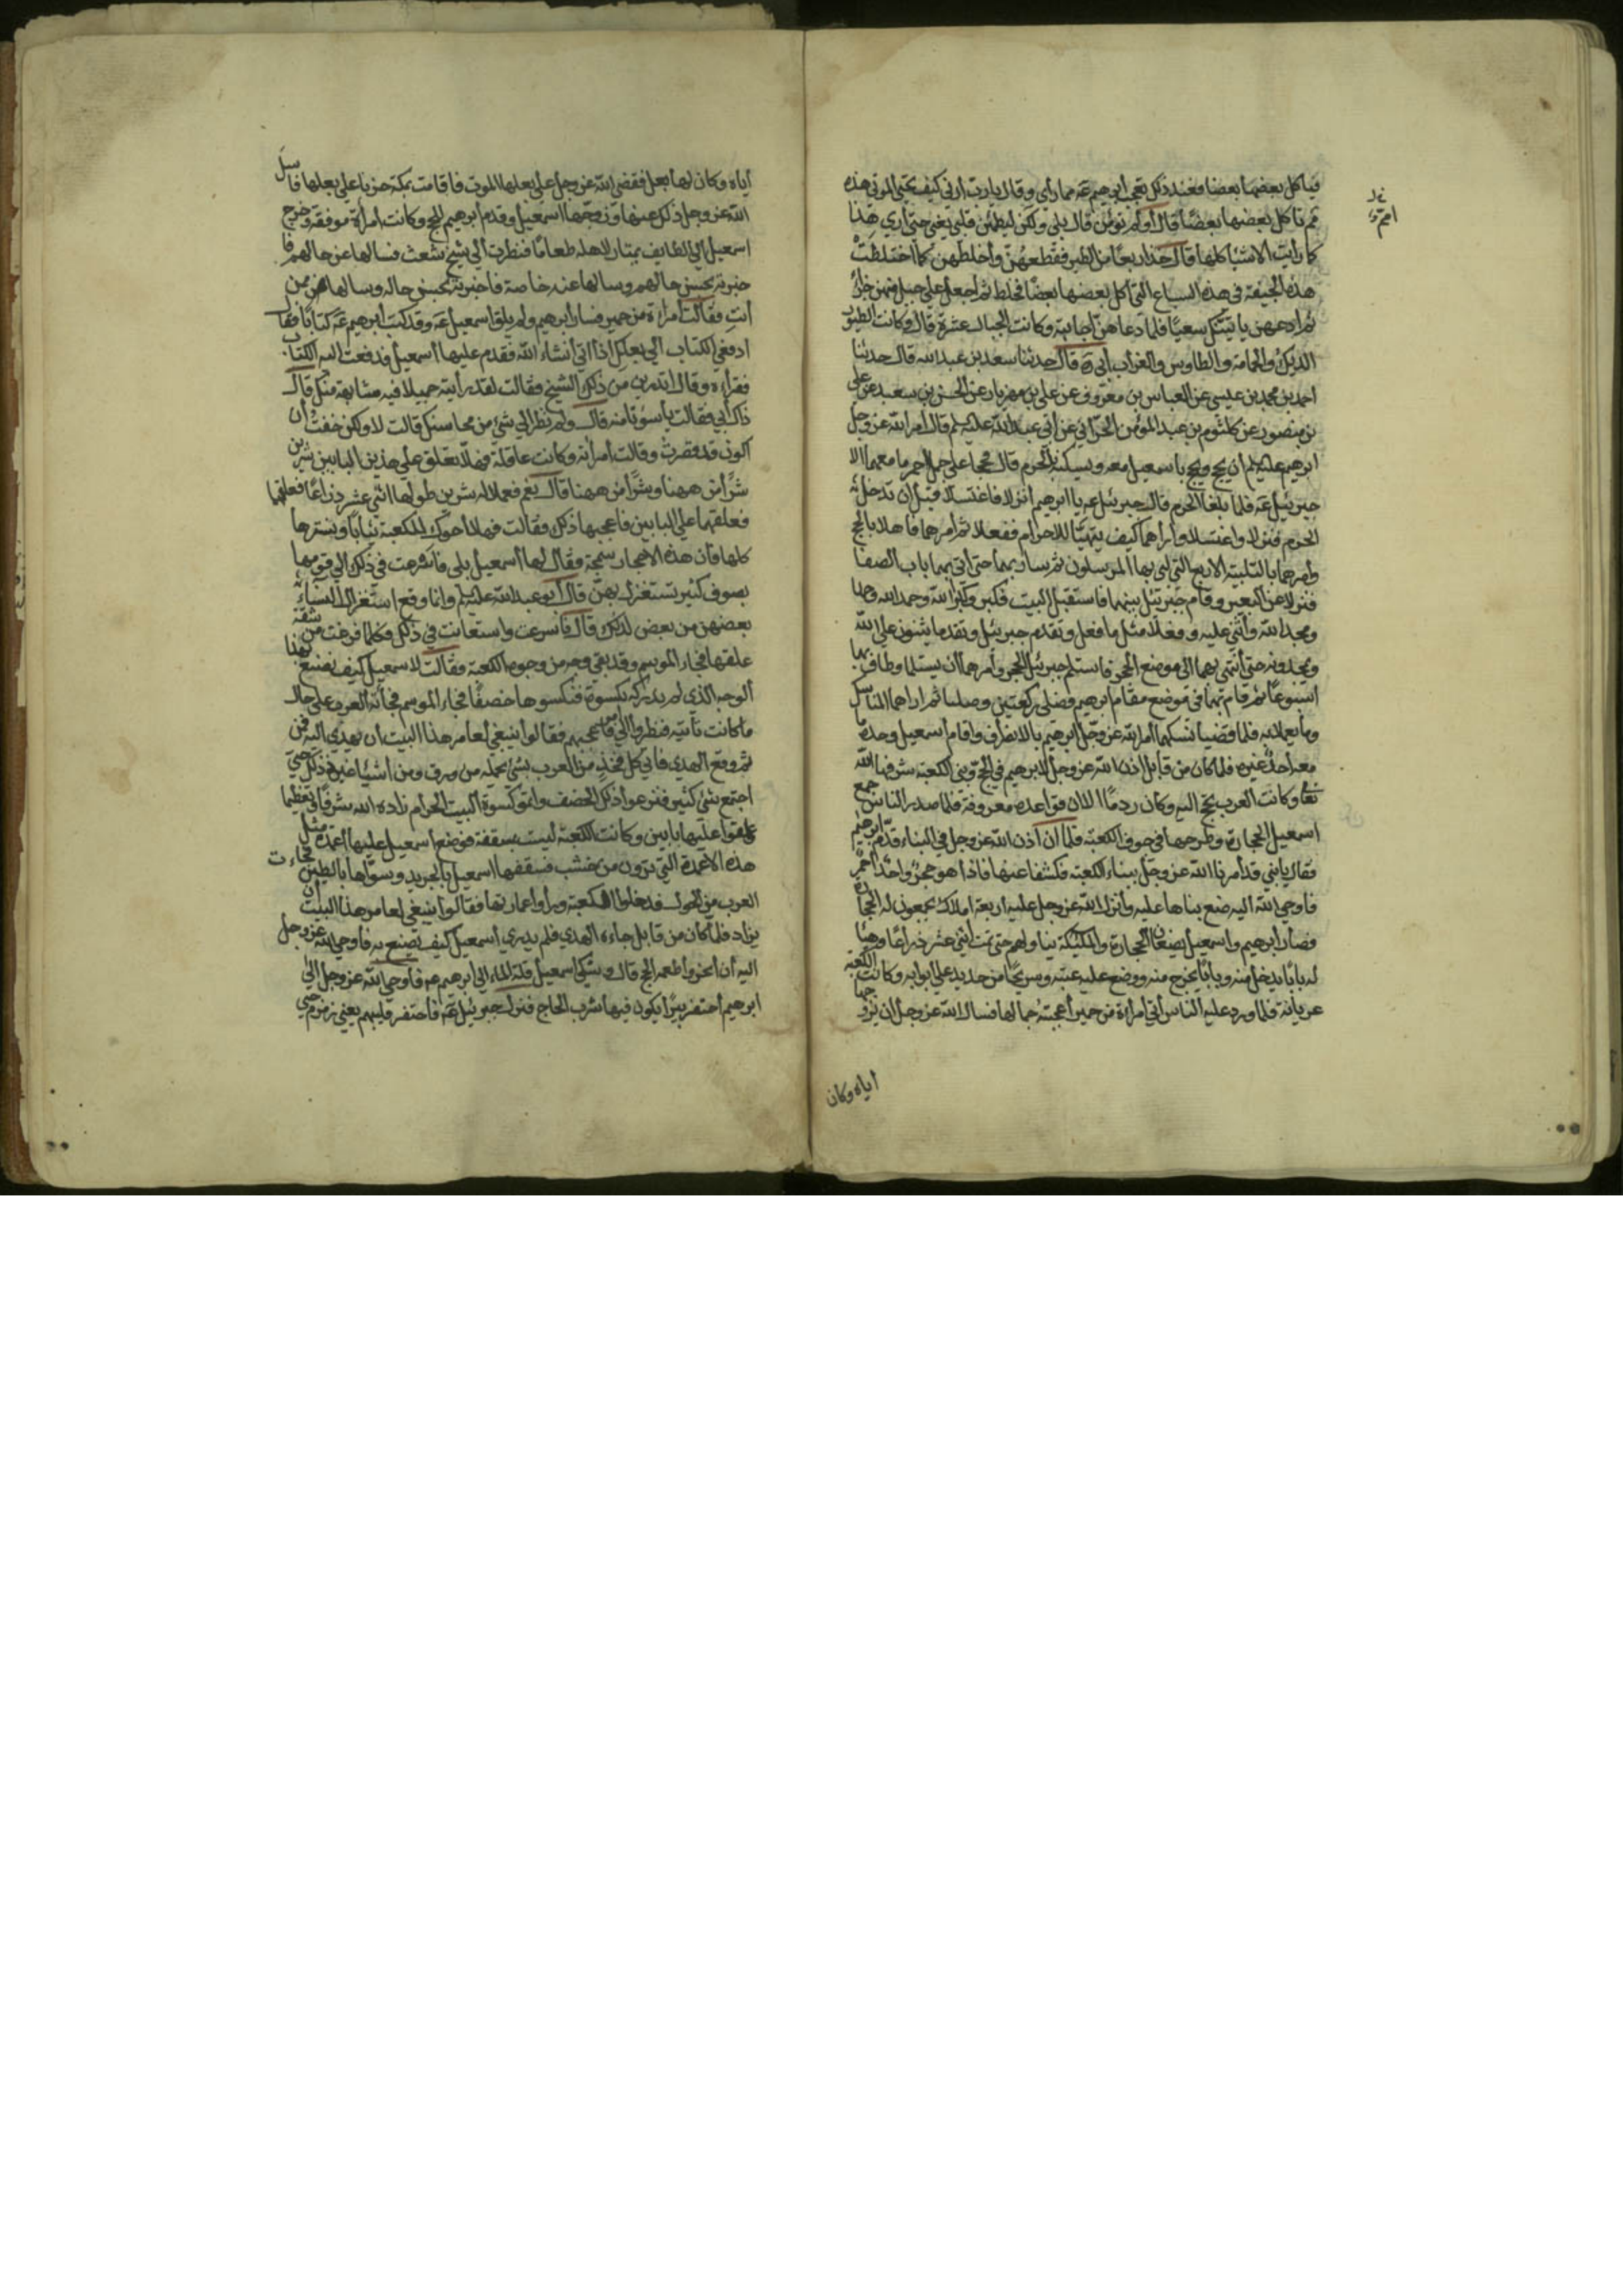 فياكل بعضها بعضا فعند ذلك تعجب ابرهيم عه مما رأى وقال يا رب ارني كيف تحيي الموتى هذه
امم تاكل بعضها بعضًا قال أو لم تؤمن قال بلى ولكن ليطمئن قلبي يعني حتى أرى هذا
كما رأيت الاشيا كلها قال خذ اربعة من الطير فقطعهن وأخلطهن كما اختلطت
هذه الجيفة في هذه السباع التي اكل بعضها بعضًا فخلط ثم اجعل على جبل منهن جزءًا
ثم ادعهن ياتينك سعيًا فلما دعاهن اجابته وكانت الجبال عشرة قال وكانت الطيور
الديك والحمامة والطاوس والغراب أبي ره قال حدثنا سعد بن عبد الله قال حدثنا
احمد بن محمد بن عيسى عن العباس بن معروف عن علي بن مهزيار عن الحسين بن سعيد عن علي
بن منصور عن كلثوم بن عبد المؤمن الحراني عن أبي عبد الله عليه السلم قال أمر الله عز وجل
ابرهيم عليه السلم ان يحج ويحج باسمعيل معه ويسكنه الحرم قال فحجا على جمل احمر ما معهما الا
جبرئيل عه فلما بلغا الحرم قال جبرئيل عه يا ابرهيم انزلا فاغتسلا قبل ان تدخلا
الحرم فنزلا واغتسلا وأراهما كيف يتهيئا للاحرام ففعلا ثم أمرهما فاهلا بالحج
وأمرهما بالتلبية الاربع التي لبى بها المرسلون ثم سار بهما حتى أتى بهما باب الصفا
فنزلا عن البعير وقام جبرئيل بينهما فاستقبل البيت فكبر وكبرا الله وحمد الله وحمدا
ومجدا الله وأثنى عليه وفعلا مثل ما فعل وتقدم جبرئيل وتقدما يثنون على الله
ويمجدونه حتى أنتهى بهما الى موضع الحجر فاستلم جبرئيل الحجر وأمرهما ان يستلما وطاف بهما
اسبوعًا ثم قام بهما في موضع مقام ابرهيم فصلى ركعتين وصليا ثم اراهما المناسك
وما يعملانه فلما قضيا نسكهما أمر الله عز وجل ابرهيم بالانصراف واقام أسمعيل وحده ما
معه أحد غيره فلما كان من قابل اذن الله عز وجل لابرهيم في الحج وبنى الكعبة شرفها الله
تعالى وكانت العرب تحج اليه وكان ردمًا الا ان قواعده معروفة فلما صدر الناس جمع
اسمعيل الحجارة وطرحها في جوف الكعبة فلما ان أذن الله عز وجل في البناء قدم ابرهيم
فقال يا بني قد أمرنا الله عز وجل ببناء الكعبة فكشفا عنها فاذا هو حجر واحد أحمر
فاوحى الله اليه ضع بناها عليه وأنزل الله عز وجل عليه اربعة املاك يجمعون له الحجارة
فصار أبرهيم واسمعيل يضعان الحجارة والملئكة يناولهم حتى تمت اثني عشر ذراعًا وهيا
له بابًا يدخل منه وبابًا يخرج منه ووضع عليه عتبة وسريجًا من حديد على ابوابه وكانت الكعبة
عريانة فلما ورد عليه الناس أتى امراءة من حمير أعجبته جمالها فسال الله عز وجل ان يزوجها
اياه وكان
أياه وكان لها بعل فقضى الله عز وجل على بعلها الموت فاقامت بمكة حزنا على بعلها فاسلى
الله عز وجل ذلك عنها وزوجها اسمعيل وقدم ابرهيم للحج وكانت امراة موفقة وخرج
اسمعيل الى الطايف يمتار لاهله طعامًا فنظرت الى شيخ شعث فسالها عن حالهم فا
خبرته بحسن حالهم وسالها عنه خاصة فاخبرته بحسن حاله وسالها ممن
انت فقالت أمراءة من حمير فسار أبرهيم ولم يلق اسمعيل عه وقد كتب ابرهيم عه كتابًا فقال
ادفعي الكتاب الى بعلك اذا اتى انشاء الله فقدم عليها أسمعيل فدفعت اليه الكتاب
فقراءه وقال اتدرين من ذلك الشيخ فقالت لقد رأيته جميلا فيه مشابهة منك قال
ذاك أبي فقالت يا سوءتا منه قال ولم نظر الى شئ من محاسنك قالت لا ولكن خفت أن
أكون قد قصرت وقالت أمرأته وكانت عاقلة فهلا تعلق على هذين البابين سترين
سترًا من ههنا وسترًا من ههنا قال نعم فعملا له سترين طولها اثني عشر ذراعًا فعلقهما
فعلقهما على البابين فاعجبها ذلك فقالت فهلا أحوك للكعبة ثيابًا ونسترها
كلها فان هذه الاحجار سمجة فقال لها أسمعيل بلى فاسرعت في ذلك وبعثت الى قومها
بصوف كثير تستغزل بهن قال أبو عبد الله عليه السلم وانما وقع استغزال النساء
بعضهن من بعض لذلك قال فاسرعت واستعانت في ذلك فكلما فرغت من شقة
علقتها فجاء الموسم وقد بقي وجه من وجوه الكعبة فقالت لاسمعيل كيف نصنع بهذا
الوجه الذي لم يدركه بكسوة فنكسوها خصفًا فجاء الموسم فجاءته العرب على حال
ما كانت تأتيه فنظروا الى أمر فاعجبهم فقالوا ينبغي لعامر هذا البيت ان يهدى اليه فمن
ثم وقع الهدى فاتى كل فخذ من العرب بشئ يحمله من ورق ومن أشيا غير ذلك حتى
اجتمع شئ كثير فنزعوا ذلك الخصف واتموا كسوة البيت الحرام زاده الله شرفًا وتعظيما
وعلقوا عليها بابين وكانت الكعبة ليست بمسقفة فوضع أسمعيل عليها أعمدة مثل
هذه الاعمدة التي ترون من خشب فسقفها اسمعيل بالجريد وسواها بالطين فجاءت
العرب من الحول فدخلوا الكعبة وراوا عمارتها فقالوا ينبغي لعامر هذا البيت أن
يزاد فلما كان من قابل جاءه الهدى فلم يدرى أسمعيل كيف يصنع به فاوحى الله عز وجل
اليه أن أنحره وأطعمه الحج قال وشكى اسمعيل قلة الماء الى ابرهيم عه فاوحى الله عز وجل الى
ابرهيم أحتفر بيرًا يكون فيها شرب الحاج فنزل جبرئيل عه فاحتفر قليبهم يعني زمزم حتى